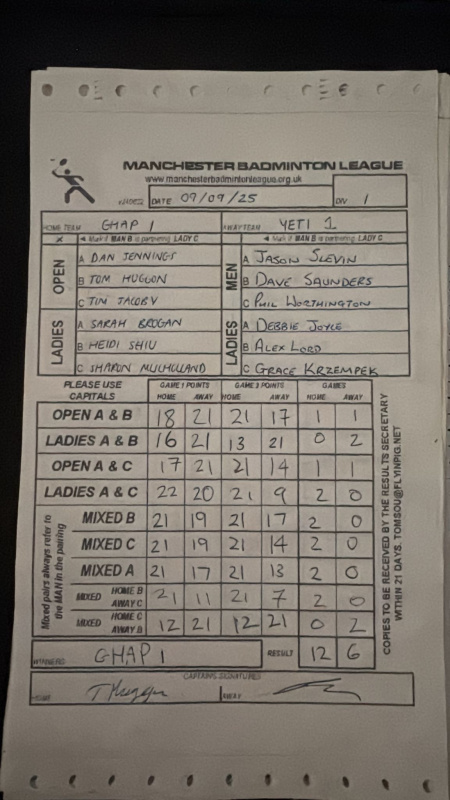 MANCHESTER BADMINTON LEAGUE
www.manchesterbadmintonleague.org.uk
DATE 09/09/25 DIV 1
HOME TEAM GHAP 1 AWAY TEAM YETI 1
X ◄ Mark if MAN B is partnering LADY C ◄ Mark if MAN B is partnering LADY C
OPEN A DAN JENNINGS MEN A JASON SLEVIN
B TOM HUGGON B DAVE SAUNDERS
C TIM JACOBY C PHIL WORTHINGTON
LADIES A SARAH BROGAN LADIES A DEBBIE JOYCE
B HEIDI SHIU B ALEX LORD
C SHARON MULHOLLAND C GRACE KRZEMPEK
PLEASE USE CAPITALS GAME 1 POINTS GAME 2 POINTS GAMES
HOME AWAY HOME AWAY HOME AWAY
OPEN A & B 18 21 21 17 1 1
LADIES A & B 16 21 13 21 0 2
OPEN A & C 17 21 21 14 1 1
LADIES A & C 22 20 21 9 2 0
Mixed pairs always refer to the MAN in the pairing
MIXED B 21 19 21 17 2 0
MIXED C 21 19 21 14 2 0
MIXED A 21 17 21 13 2 0
MIXED HOME B AWAY C 21 11 21 7 2 0
MIXED HOME C AWAY B 12 21 12 21 0 2
WINNERS GHAP 1 RESULT 12 6
CAPTAINS SIGNATURES
HOME AWAY
COPIES TO BE RECEIVED BY THE RESULTS SECRETARY
WITHIN 21 DAYS. TOMSOU@FLYINPIG.NET